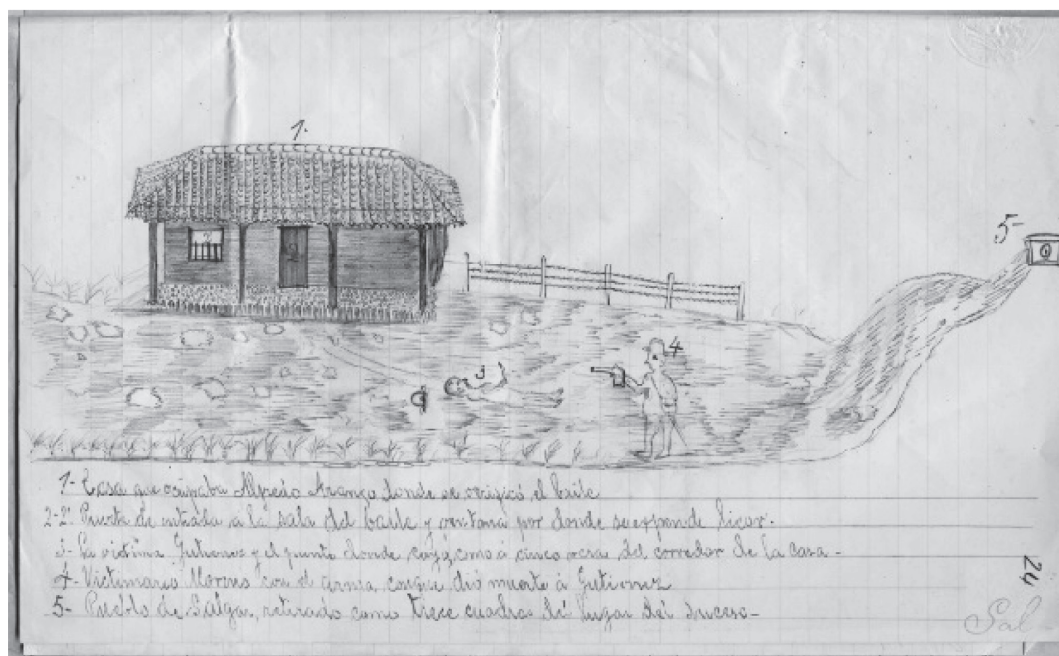 1.
2
2
5-
4
3
1- Casa que ocupaba Alfredo Arango donde se verificó el baile
2-2. Puerta de entrada a la sala del baile y ventana por donde se expende licor.
3- La víctima Gutierrez y el punto donde cayó, como á cinco del corredor de la casa-
4- Victimario Moreno con el arma conque dió muerte á Gutierrez
5- Pueblo de Salga, retirado como trece cuadras del lugar del suceso-
24
Sal